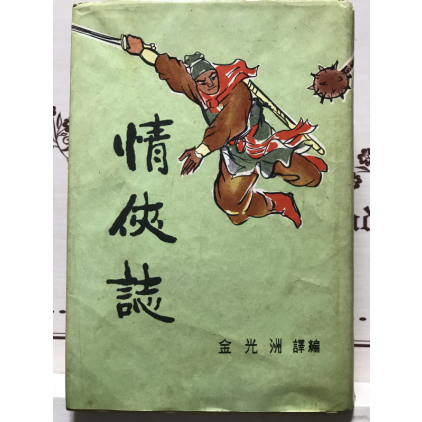 情俠誌
金光洲 譯編